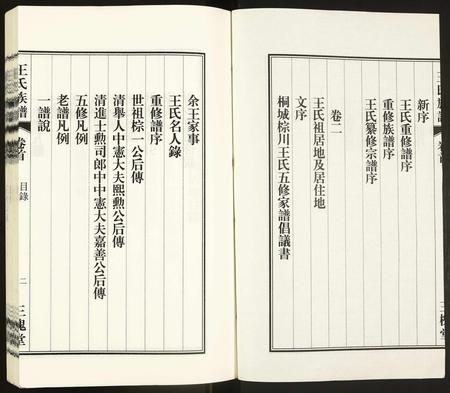 新序
王氏重修譜序
重修族譜序
王氏纂修宗譜序
卷二
王氏祖居地及居住地
文序
桐城棕川王氏五修家譜倡議書
余王家事
王氏名人錄
重修譜序
世祖棕一公后傳
清舉人中憲大夫熙勲公后傳
清進士勲司郎中中憲大夫嘉善公后傳
五修凡例
老譜凡例
一譜說
王氏族譜 卷首 目錄 二 三槐堂